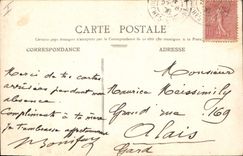 CARTE POSTALE
CORRESPONDANCE
ADRESSE
Merci de ta carte
arrivée pendant mon
absence.
Compliments à ta mère
je t'embrasse
Monsieur
Maurice Maissimily
Grand rue 169
Alais
Gard